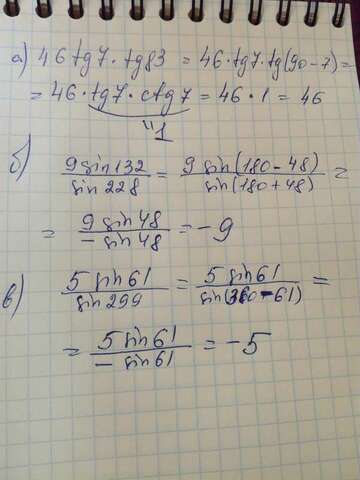 а) 46 tg7 · tg83 = 46 · tg7 · tg(90 - 7) =
= 46 · tg7 · ctg7 = 46 · 1 = 46
1
б) 9 sin 132 / sin 228 = 9 sin(180 - 48) / sin(180 + 48) =
= 9 sin 48 / - sin 48 = - 9
в) 5 sin 61 / sin 299 = 5 sin 61 / sin(360 - 61) =
= 5 sin 61 / - sin 61 = - 5